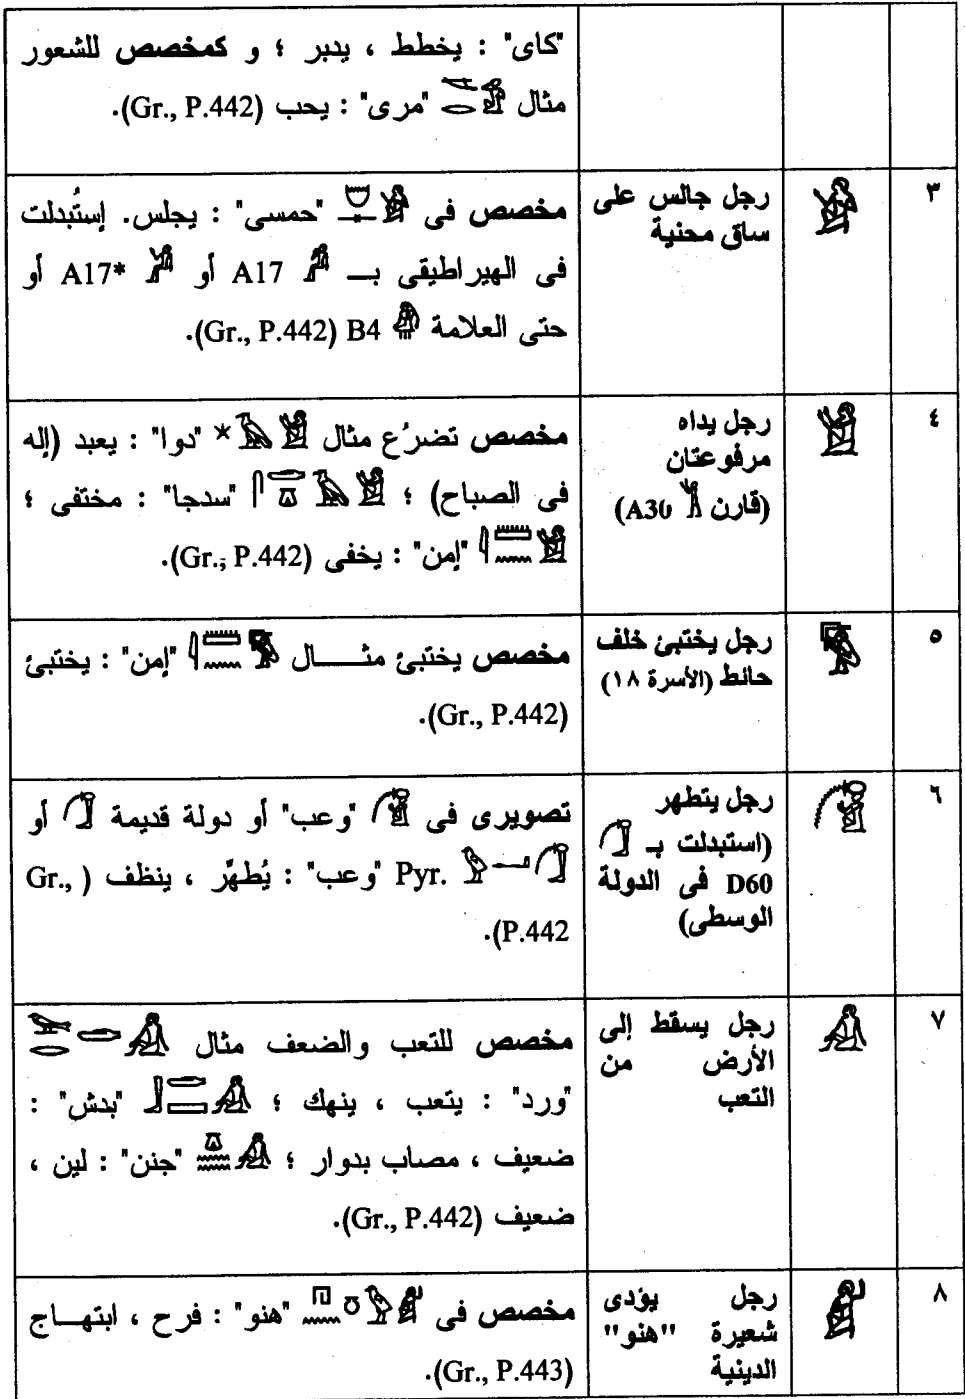 "كاى" : يخطط ، يدبر ؛ و كمخصص للشعور
مثال 𓌻𓂋𓀁 "مرى" : يحب (Gr., P.442).
٣
رجل جالس على
ساق محنية
مخصص فى "حمسى" : يجلس. إستُبدلت
فى الهيراطيقى بـ A17 أو A17* أو
حتى العلامة B4 (Gr., P.442).
٤
رجل يداه
مرفوعتان
(قارن A30)
مخصص تضرُع مثال "دوا" : يعبد (إله
فى الصباح) ؛ "سدجا" : مختفى ؛
"إمن" : يخفى (Gr., P.442).
٥
رجل يختبئ خلف
حائط (الأسرة ١٨)
مخصص يختبئ مثـــال "إمن" : يختبئ
(Gr., P.442).
٦
رجل يتطهر
(استبدلت بـ
D60 فى الدولة
الوسطى)
تصويرى فى "وعب" أو دولة قديمة أو
Pyr. "وعب" : يُطهَّر ، ينظف (Gr.,
P.442).
٧
رجل يسقط إلى
الأرض من
التعب
مخصص للتعب والضعف مثال
"ورد" : يتعب ، ينهك ؛ "بدش" :
ضعيف ، مصاب بدوار ؛ "جنن" : لين ،
ضعيف (Gr., P.442).
٨
رجل يؤدى
شعيرة "هنو"
الدينية
مخصص فى "هنو" : فرح ، ابتهـاج
(Gr., P.443).